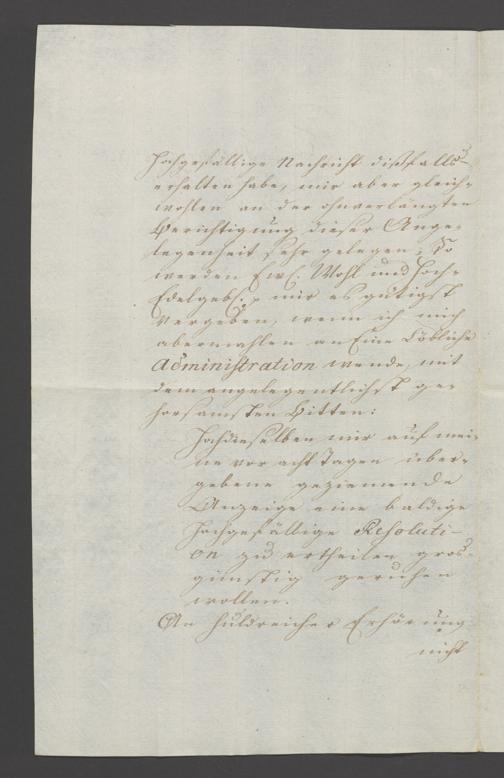 hochgefällige Nachricht dißfalls
erhalten habe, mir aber gleich-
wohlen an der ohnverlängten
Berichtigung dieser Ange-
legenheit sehr gelegen; So
werden Ew. Wohl und Hoch-
Edelgeb. mir es gütigst
vergeben, wenn ich mich
abermahlen an Eine Löbliche
Administration wende, mit
dem angelegentlichst ge-
horsamsten Bitten:
Hochdieselben mir auf mei-
ne vor acht Tagen über-
gebene geziemende
Anzeige eine baldige
Hochgefällige Resoluti-
on zu ertheilen gros-
günstig geruhen
wollen.
An huldreicher Erhörung
nicht